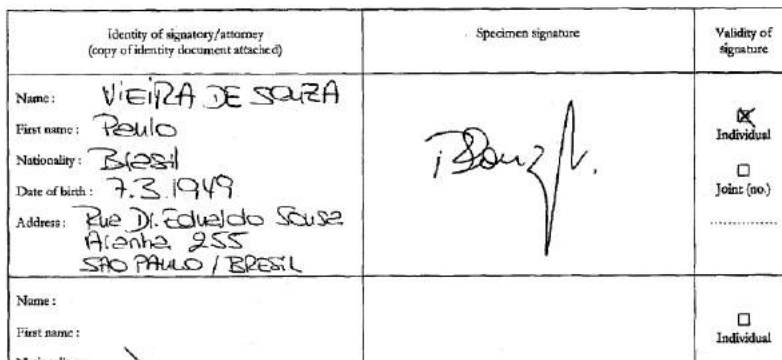 Identity of signatory/attorney
(copy of identity document attached)
Specimen signature
Validity of
signature
Name: VIEIRA DE SOUZA
First name: Paulo
Nationality: Brasil
Date of birth: 7.3.1949
Address: Rua Dr. Eduardo Sousa
Aranha 255
SAO PAULO / BRESIL
Individual
Joint (no.)
Name:
First name:
Individual